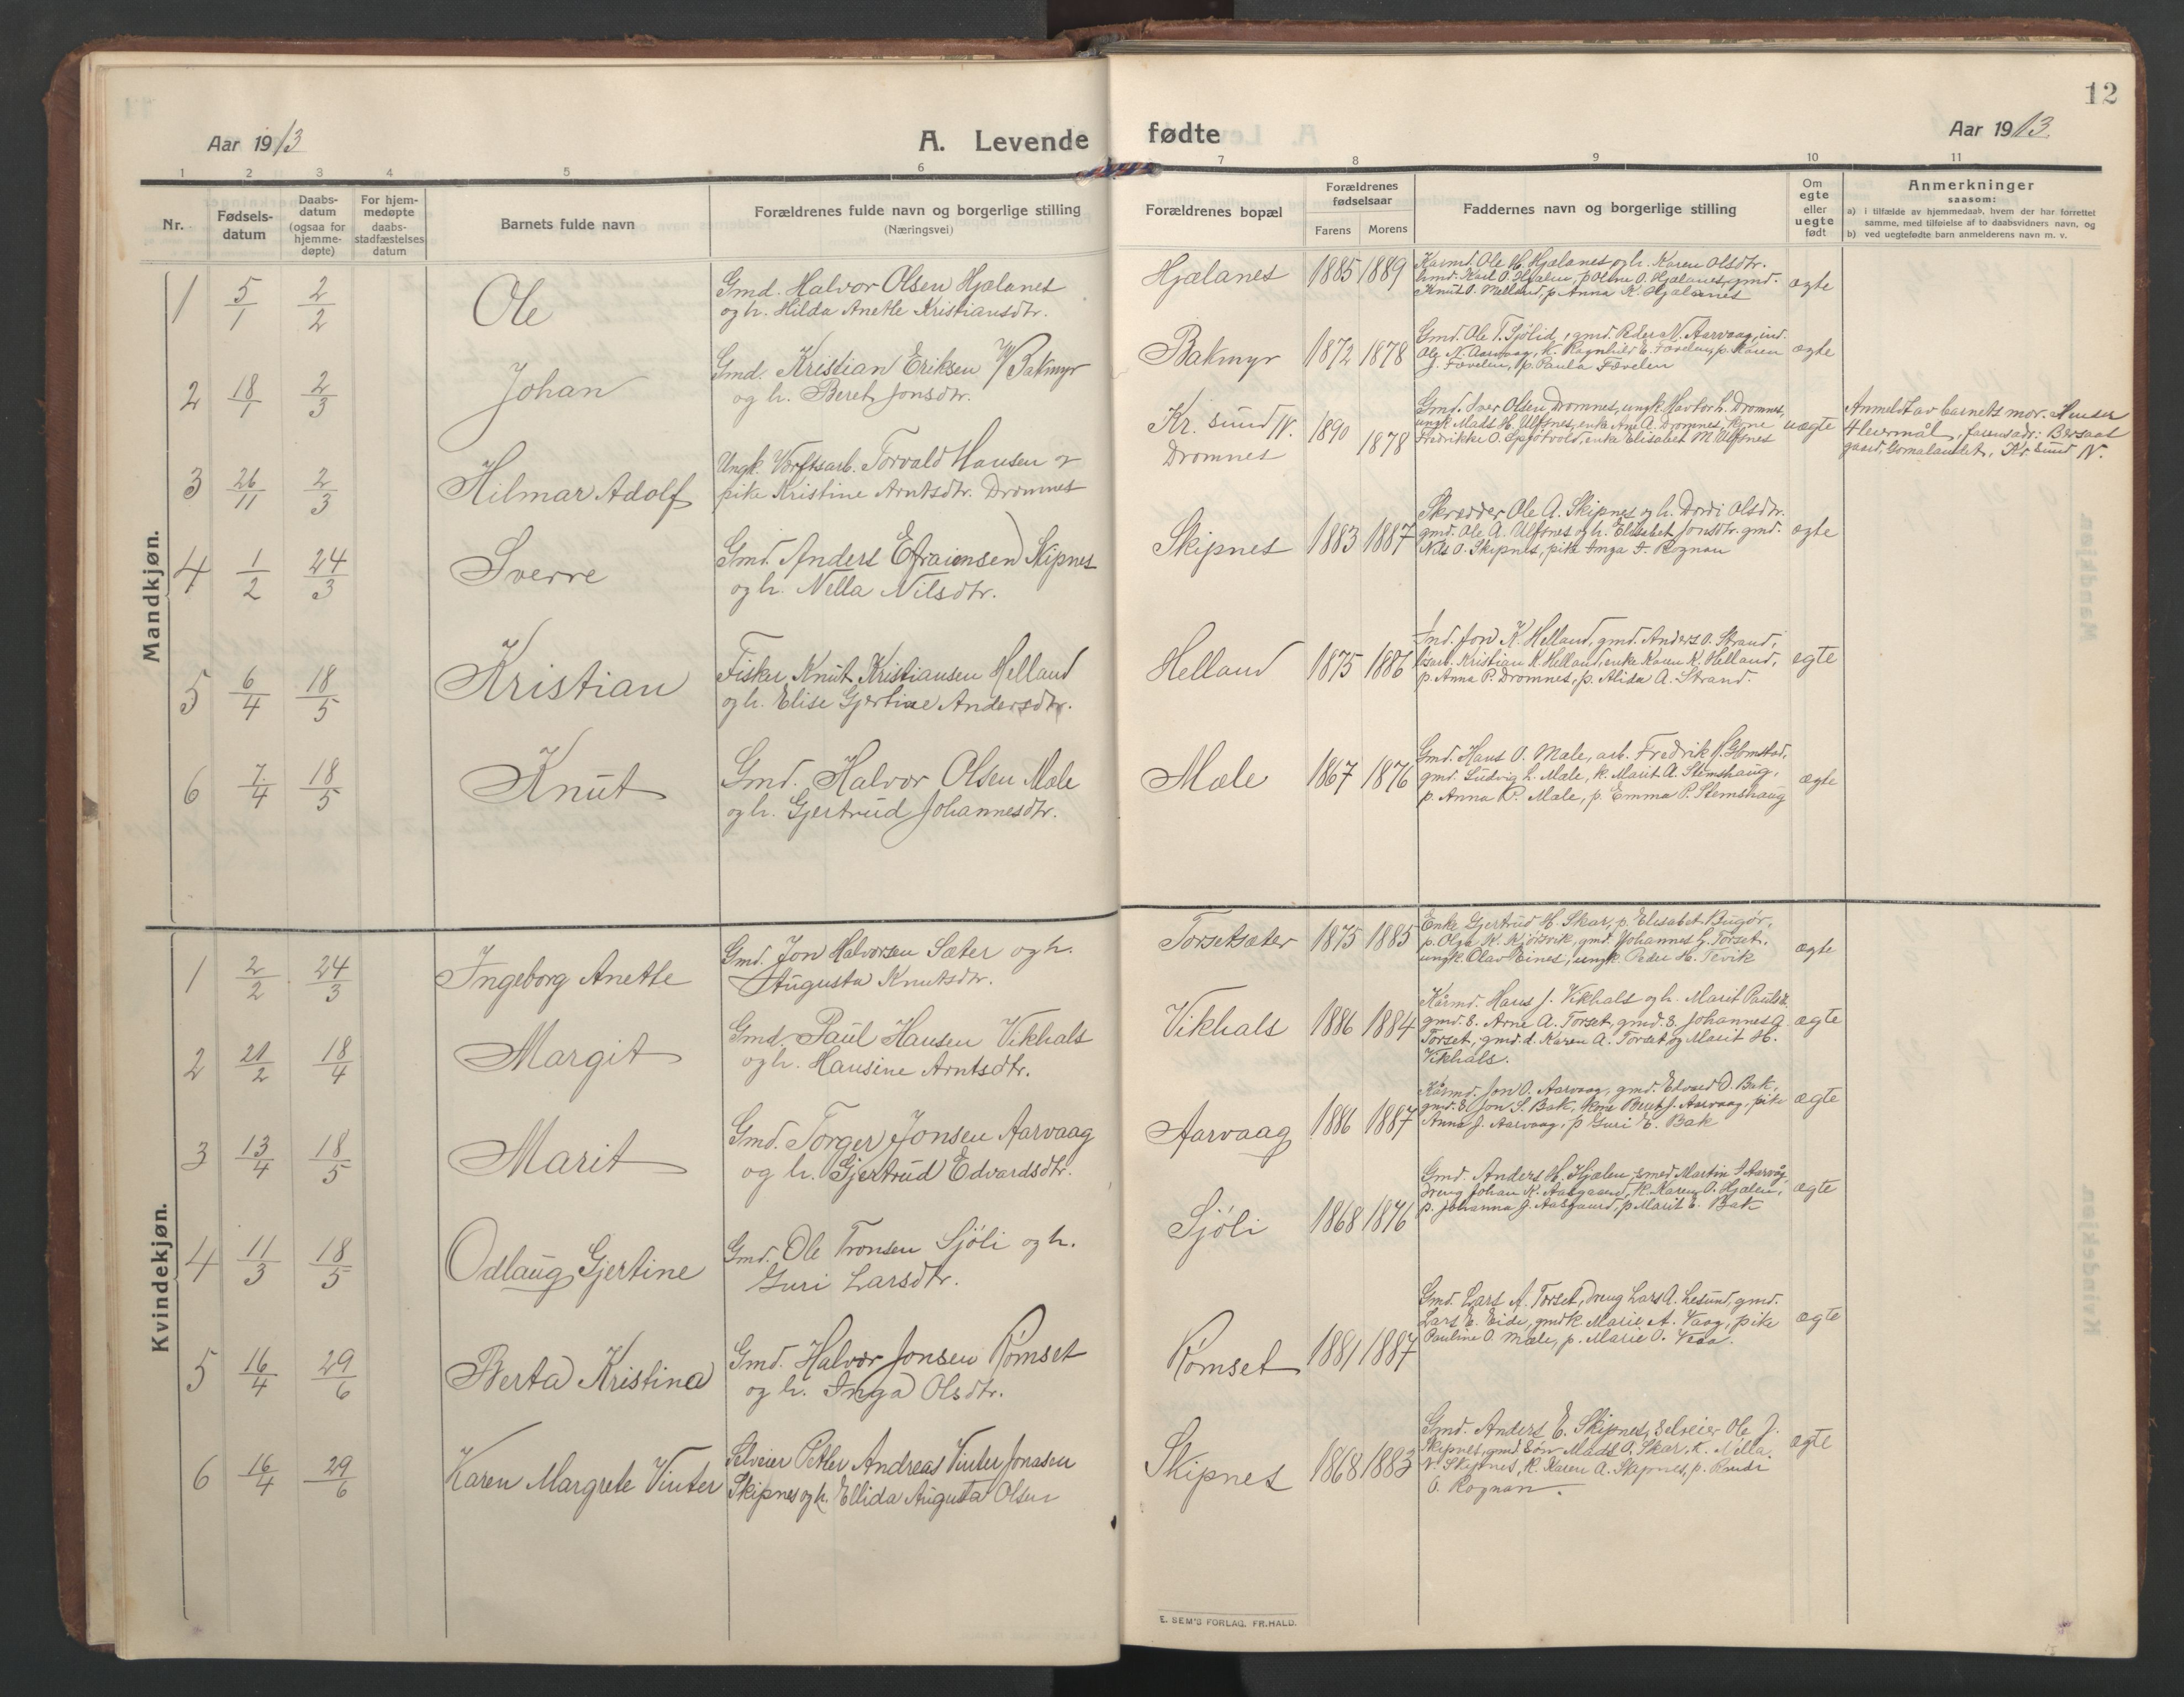 12
Aar 1913
A. Levende fødte
Aar 1913.
1 2 3 4 5 6 7 8 9 10 11
Nr.
Fødsels-
datum
Daabs-
datum
(ogsaa for
hjemme-
døpte)
For hjem-
medøpte
daabs-
stadfæstelses
datum
Barnets fulde navn
Forældrenes fulde navn og borgerlige stilling
(Næringsvei)
Forældrenes bopæl
Forældrenes
fødselsaar
Farens Morens
Faddernes navn og borgerlige stilling
Om
egte
eller
uegte
født
Anmerkninger
saasom:
a) i tilfælde av hjemmedaab, hvem der har forrettet
samme, med tilføielse af to daabsvidners navn, og
b) ved uegtefødte barn anmelderens navn m. v.
Mandkjøn.
1 5/1 2/2 Ole
Gmd. Halvor Olsen Hjælanes
og h. Hilda Anette Kristiansdtr.
Hjælanes 1885 1889
Kaarmd. Ole H. Hjælanes og h. Karen Olsdtr.
Karl O. Hjælen, p. Oline O. Hjælanes, gmd.
Knut O. Mælland, p. Anna K. Hjælanes
ægte
2 18/1 2/3 Johan
Gmd. Kristian Eriksen Bakmyr
og h. Beret Jonsdtr.
Bakmyr 1872 1878
Gmd. Ole T. Sjølid, gmd. Peder N. Aarvaag, ind.
Ole N. Aarvaag, k. Ragnhild E. Fævelen, p. Karen
J. Fævelen, p. Paula Fævelen
ægte
3 26/11 2/3 Hilmar Adolf
Ungk. Verftsarb. Torvald Hansen og
pike Kristine Arntsdtr. Dromnes
Kr. sund N. 1890
Dromnes 1878
Gmd. Iver Olsen Dromnes, ungk. Havtor L. Dromnes,
ungk. Mads H. Ulfsnes, enke Ane A. Dromnes, kone
Fredrikke O. Spjøtvold, enke Elisabet M. Ulfsnes
uægte
Anmeldt av barnets mor.
farens adr: Bersaas
gaard, Gomalandet, Kr. sund N.
4 1/2 24/3 Sverre
Gmd. Anders Efraimsen Skipnes
og h. Nella Nilsdtr.
Skipnes 1883 1887
Skrædder Ole A. Skipnes og h. Dordi Olsdtr.
gmd. Ole A. Ulfsnes og h. Elisabet Jonsdtr. gmd.
Nils O. Skipnes, pike Inga F. Rognan
ægte
5 6/4 18/5 Kristian
Fisker Knut Kristiansen Helland
og h. Elise Gjertine Andersdtr.
Helland 1875 1886
Ind. Jon K. Helland, gmd. Anders O. Strand,
Kristian K. Helland, enke Karen K. Helland,
p. Anna P. Dromnes, p. Alida A. Strand.
egte
6 7/4 18/5 Knut
Gmd. Halvor Olsen Mæle
og h. Gjertrud Johannesdtr.
Mæle 1867 1876
Gmd. Hans O. Mæle, arb. Fredrik H. Glomstad,
gmd. Ludvig L. Mæle, k. Marit A. Stemshaug,
p. Anna P. Mæle, p. Emma P. Stemshaug
ægte
Kvindekjøn.
1 2/2 24/3 Ingeborg Anette
Gmd. Jon Halvorsen Sæter og h.
Augusta Knutsdtr.
Torsetsæter 1875 1885
Enke Gjertrud H. Skar, p. Elisabet Bugør,
p. Olga K. Kjørsvik, gmd. Johannes G. Torset,
ungk. Olav Eines, ungk. Peder H. Tevik
ægte
2 21/2 18/4 Margit
Gmd. Paul Hansen Vikhals
og h. Hansine Arntsdtr.
Vikhals 1886 1884
Kårmd. Hans J. Vikhals og h. Marit Paulsd.
gmd. s. Arne A. Torset, gmd. s. Johannes G.
Torset, gmd. d. Karen A. Torset og Marit H.
Vikhals.
ægte
3 13/4 18/5 Marit
Gmd. Torger Jonsen Aarvaag
og h. Gjertrud Edvardsdtr.
Aarvaag 1886 1887
Kårmd. Jon O. Aarvaag, gmd. Edvard O. Bak,
gmd. s. Jon S. Bak, kone Beret J. Aarvaag, pike
Anna J. Aarvaag, p. Guri E. Bak
ægte
4 11/3 18/5 Odlaug Gjertine
Gmd. Ole Tronsen Sjöli og h.
Guri Larsdtr.
Sjöli 1868 1876
Gmd. Anders H. Hjælen, smed Martin I. Aarvåg,
dreng Johan K. Aasgaard, k. Karen O. Hjælen,
p. Johanna J. Aasgaard, p. Marit E. Bak
ægte
5 16/4 29/6 Berta Kristina
Gmd. Halvor Jonsen Römset
og h. Inga Olsdtr.
Römset 1881 1887
Gmd. Lars A. Torset, dreng Lars A. Lesund, gmd.
Lars E. Eide, gmdk. Marie A. Vaag, pike
Pauline O. Mæle, p. Marie O.
ægte
6 16/4 29/6 Karen Margrete Vinter
Selveier Petter Andreas Vinter Jonasen
Skipnes og h. Ellida Augusta Olsen
Skipnes 1868 1883
Gmd. Anders E. Skipnes, Selveier Ole J.
Skipnes, gmd. Søn Mads O. Skar, k. Nella
N. Skipnes, k. Karen A. Skipnes, p. Randi
O. Rognan.
ægte
E. SEM'S FORLAG, FR.HALD.